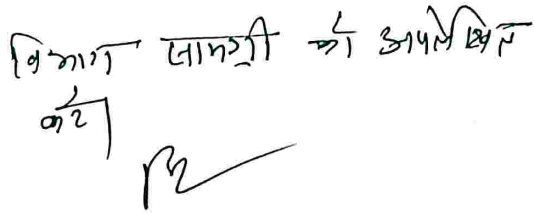 विभाग सामग्री को अपलेखित
करें।